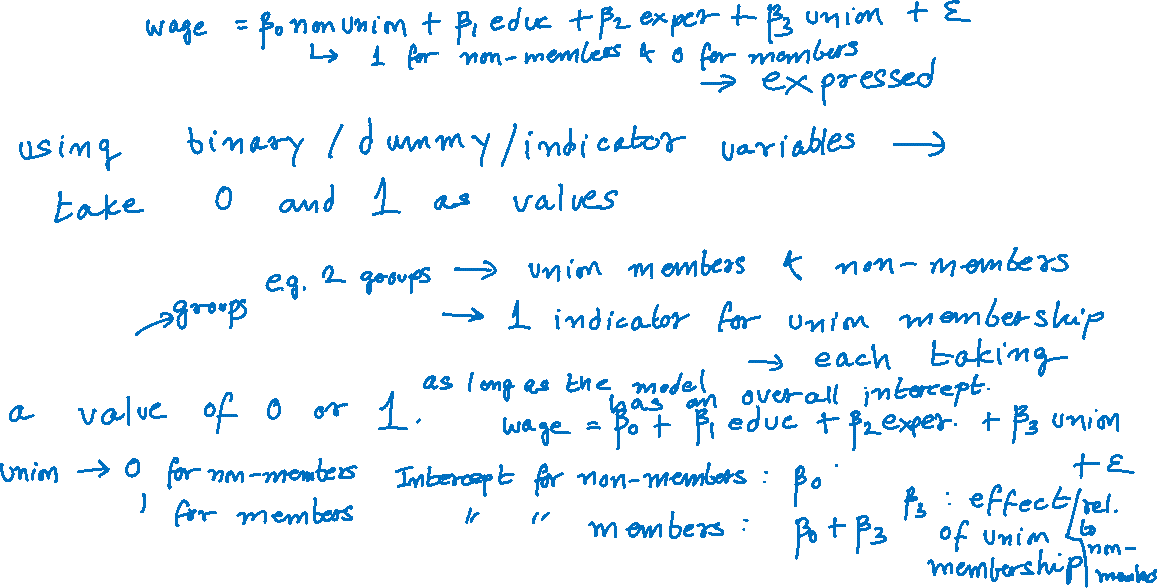 wage = β₀ nonunion + β₁ educ + β₂ exper + β₃ union + ε
↳ 1 for non-members & 0 for members
→ expressed
using binary / dummy / indicator variables →
take 0 and 1 as values
e.g. 2 groups → union members & non-members
→ groups
→ 1 indicator for union membership
→ each taking
a value of 0 or 1. as long as the model has an overall intercept.
wage = β₀ + β₁ educ + β₂ exper. + β₃ union + ε
union → 0 for non-members
1 for members
Intercept for non-members : β₀
" " members : β₀ + β₃
β₃ : effect of union membership / rel. to non-members